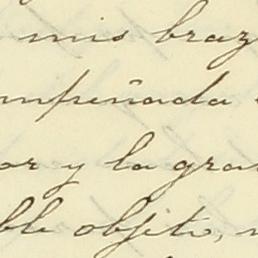 mis braz
mpeñada
or y la gra
ble objeto,